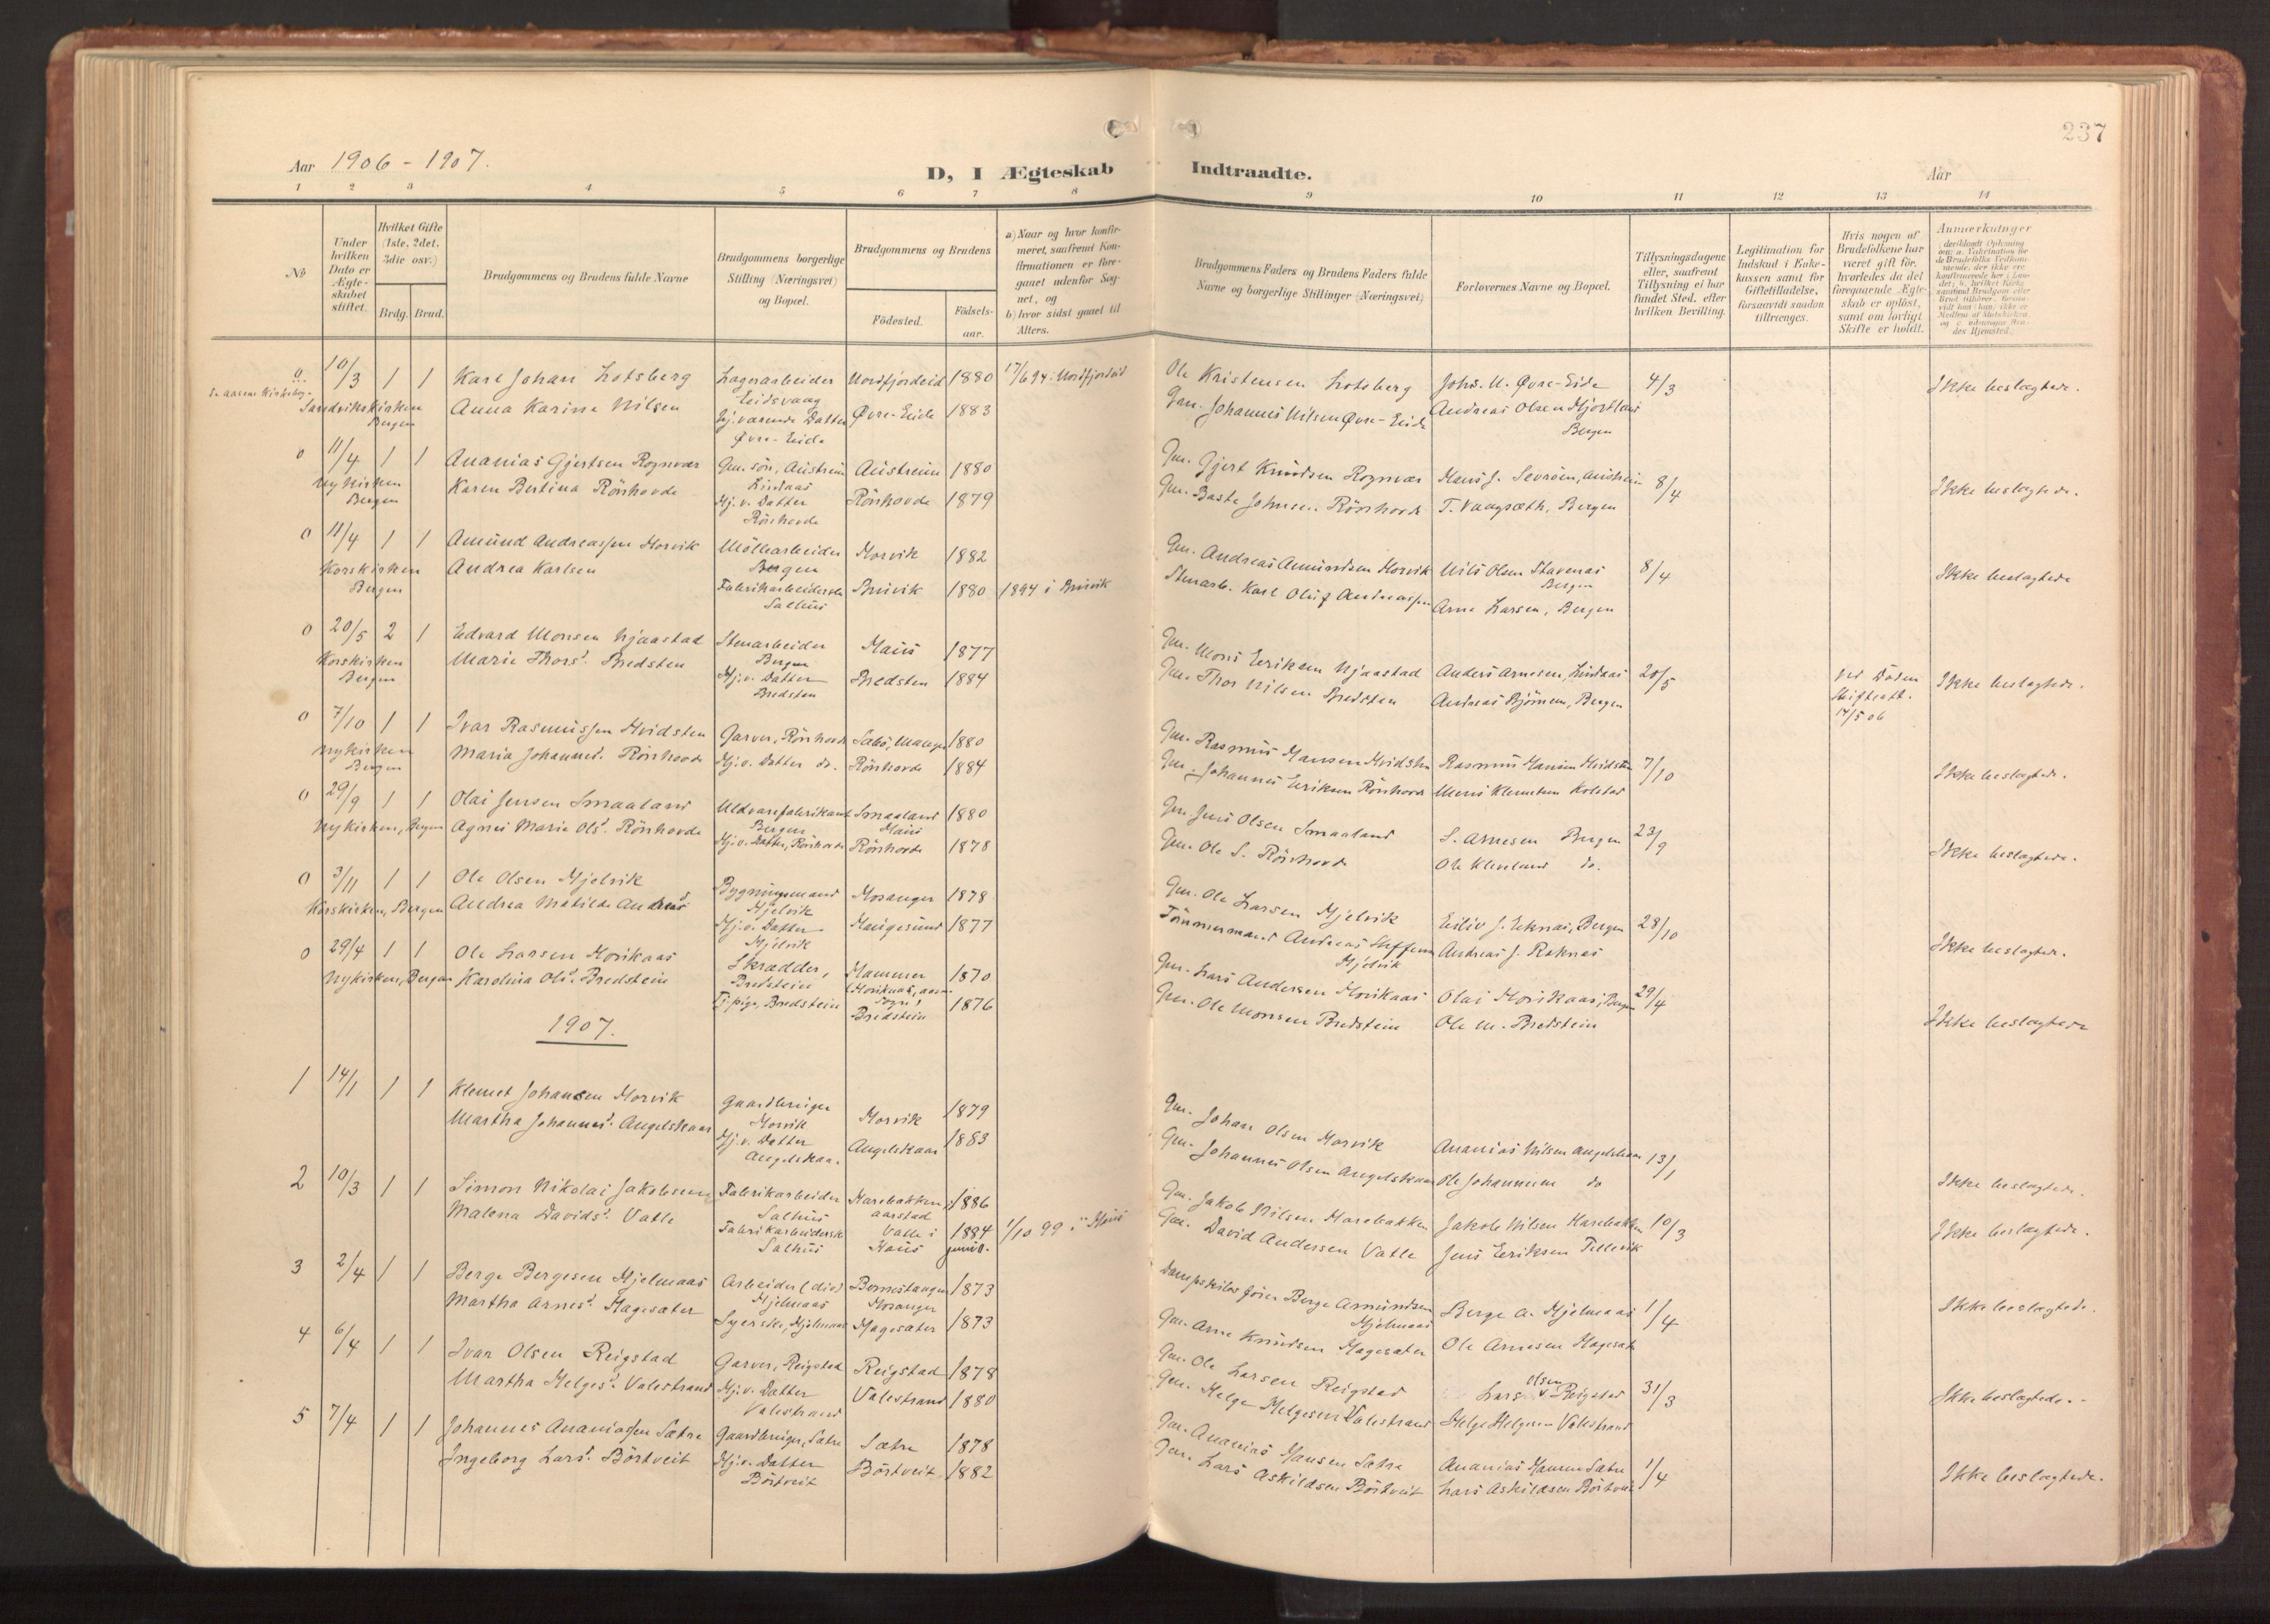 237
Aar 1906 - 1907.
D, I Ægteskab Indtraadte.
Aar
1 2 3 4 5 6 7 8 9 10 11 12 13 14
No
Under hvilken Dato er Ægteskabet stiftet.
Hvilket Gifte (1ste, 2det, 3die osv.)
Brdg. Brud.
Brudgommens og Brudens fulde Navne
Brudgommens borgerlige Stilling (Næringsvei) og Bopæl.
Brudgommens og Brudens
Födested.
Födselsaar.
a) Naar og hvor konfirmeret, saafremt Konfirmationen er foregaaet udenfor Sognet, og
b) hvor sidst gaaet til Alters.
Brudgommens Faders og Brudens Faders fulde Navne og borgerlige Stillinger (Næringsvei)
Forlovernes Navne og Bopæl.
Tillysningsdagene eller, saafremt Tillysning ei har fundet Sted, efter hvilken Bevilling.
Legitimation for Indskud i Enkekassen samt for Giftetilladelse, forsaavidt saadan tiltrænges.
Hvis nogen af Brudefolkene har været gift för, hvorledes da det foregaaende Ægteskab er oplöst, samt om lovligt Skifte er holdt.
Anmærkninger
0 10/3 1 1 Karl Johan Lotsberg Lagerarbeider Eidsvaag Nordfjordeid 1880 17/6 94 Nordfjordeid Ole Kristensen Lotsberg Johs. N. Øvre-Eide 4/3 Ikke beslægtede.
Sandvikskirken Bergen Anna Karine Nilsen Hj. værende Datter Øvre-Eide Øvre-Eide 1883 Gm. Johannes Nilsen Øvre-Eide Andreas Olsen Hjortland Bergen
0 11/4 1 1 Ananias Gjertsen Rognvær Gm. sön, Austrheim Lindaas Austrheim 1880 Gm. Gjert Knudsen Rognvær Hans J. Sevröen, Austrheim 8/4 Ikke beslægtede.
Nykirken Bergen Karen Bertina Rönhovde Hj. v. Datter Rönhovde Rönhovde 1879 Gm. Baste Johnsen Rönhovde T. Vaagsæth, Bergen
0 11/4 1 1 Amund Andreassen Horvik Möllearbeider Bergen Horvik 1882 Gm. Andreas Amundsen Horvik Nils Olsen Stavenas Bergen 8/4 Ikke beslægtede
Korskirken Bergen Andrea Karlsen Fabrikarbeiderske Salhus Bruvik 1880 1894 i Bruvik Stenarb. Karl Oluf Andreassen Arne Larsen, Bergen
0 20/5 2 1 Edvard Monsen Njaastad Stenarbeider Bergen Haus 1877 Gm. Mons Eriksen Njaastad Anders Arnesen, Lindaas 20/5 ved Döden Skifteatt. 14/5 06 Ikke beslægtede.
Korskirken Bergen Marie Thorsd. Bredsten Hj. v. Datter Bredsten Bredsten 1884 Gm. Thor Nilsen Bredsten Andreas Björnsen, Bergen
0 7/10 1 1 Ivar Rasmussen Hvidsten Garver, Rönhovde Sabö, Manger 1880 Gm. Rasmus Hansen Hvidsten Rasmus Hansen Hvidsten 7/10 Ikke beslægtede.
Nykirken Bergen Maria Johannesd. Rönhovde Hj. v. Datter do. Rönhovde 1884 Gm. Johannes Eriksen Rönhovde Mons Klemetsen Kolstad
0 29/9 1 1 Olai Jensen Smaaland Uldvarefabrikant Bergen Smaaland Haus 1880 Gm. Jens Olsen Smaaland S. Arnesen Bergen 23/9 Ikke beslægtede.
Nykirken, Bergen Agnes Marie Olsd. Rönhovde Hj. v. Datter, Rönhovde Rönhovde 1878 Gm. Ole S. Rönhovde Ole Kleveland do.
0 3/11 1 1 Ole Olsen Hjelvik Bygningsmand Hjelvik Hosanger 1878 Gm. Ole Larsen Hjelvik Eiliv J. Eknæs, Bergen 28/10 Ikke beslægtede.
Korskirken, Bergen Andrea Matilde Andreasd Hj. v. Datter Hjelvik Haugesund 1877 Tömmermand Andreas Steffensen Hjelvik Andreas J. Raknæs
0 29/4 1 1 Ole Larsen Horikaas Skrædder, Bredstein Hammer 1870 Gm. Lars Andersen Horikaas Olai Horikaas, Bergen 29/4 Ikke beslægtede
Nykirken, Bergen Karolina Olsd. Bredstein Tj.pige, Bredstein Bredstein 1876 Gm. Ole Monsen Bredstein Ole M. Bredstein
1907.
1 14/1 1 1 Klemet Johansen Horvik Gaardbruger Horvik Horvik 1879 Gm. Johan Olsen Horvik Ananias Nilsen Angelskaar 13/1 Ikke beslægtede.
Martha Johannesd. Angelskaar Hj. v. Datter Angelskaar Angelskaar 1883 Gm. Johannes Olsen Angelskaar Ole Johannesen do
2 10/3 1 1 Simon Nikolai Jakobsen Fabrikarbeider Salhus Harebakken Aarstad 1886 Gm. Jakob Nilsen Harebakken Jakob Nilsen Harebakken 10/3 Ikke beslægtede.
Malena Davidsd. Valle Fabrikarbeiderske Salhus Valle i Haus 1884 1/10 99 i Haus Gm. David Andersen Valle Jens Eriksen Tellevik
3 2/4 1 1 Berge Bergesen Hjelmaas Arbeider (div) Hjelmaas Bernestangen Hosanger 1873 Dampskibsförer Berge Amundsen Hjelmaas Berge A. Hjelmaas 1/4 Ikke beslægtede.
Martha Arnesd. Hagesæter Syerske, Hjelmaas Hagesæter 1873 Gm. Arne Knudsen Hagesæter Ole Arnesen Hagesæter
4 6/4 1 1 Ivar Olsen Reigstad Garver, Reigstad Reigstad 1878 Gm. Ole Larsen Reigstad Lars Olsen Reigstad 31/3 Ikke beslægtede.
Martha Helgesd. Valestrand Hj. v. Datter Valestrand Valestrand 1880 Gm. Helge Helgesen Valestrand Helge Helgesen Valestrand
5 7/4 1 1 Johannes Ananiassen Sætre Gaardbruger, Sætre Sætre 1878 Gm. Ananias Hansen Sætre Ananias Hansen Sætre 1/4 Ikke beslægtede.
Ingeborg Larsd. Börtveit Hj. v. Datter Börtveit Börtveit 1882 Gm. Lars Askildsen Börtveit Lars Askildsen Börtveit